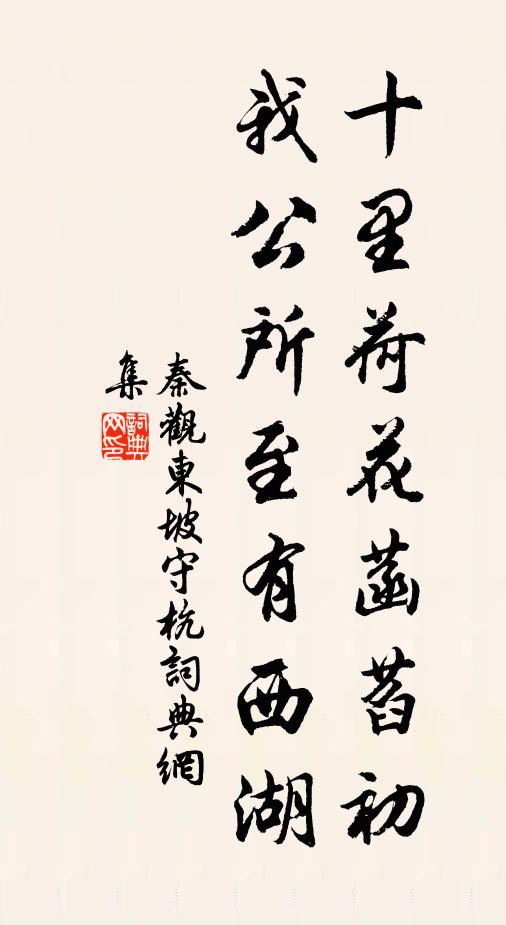 十里荷花菡萏初
我公所至有西湖
秦觀東坡守杭詞典網
集
詞典網印